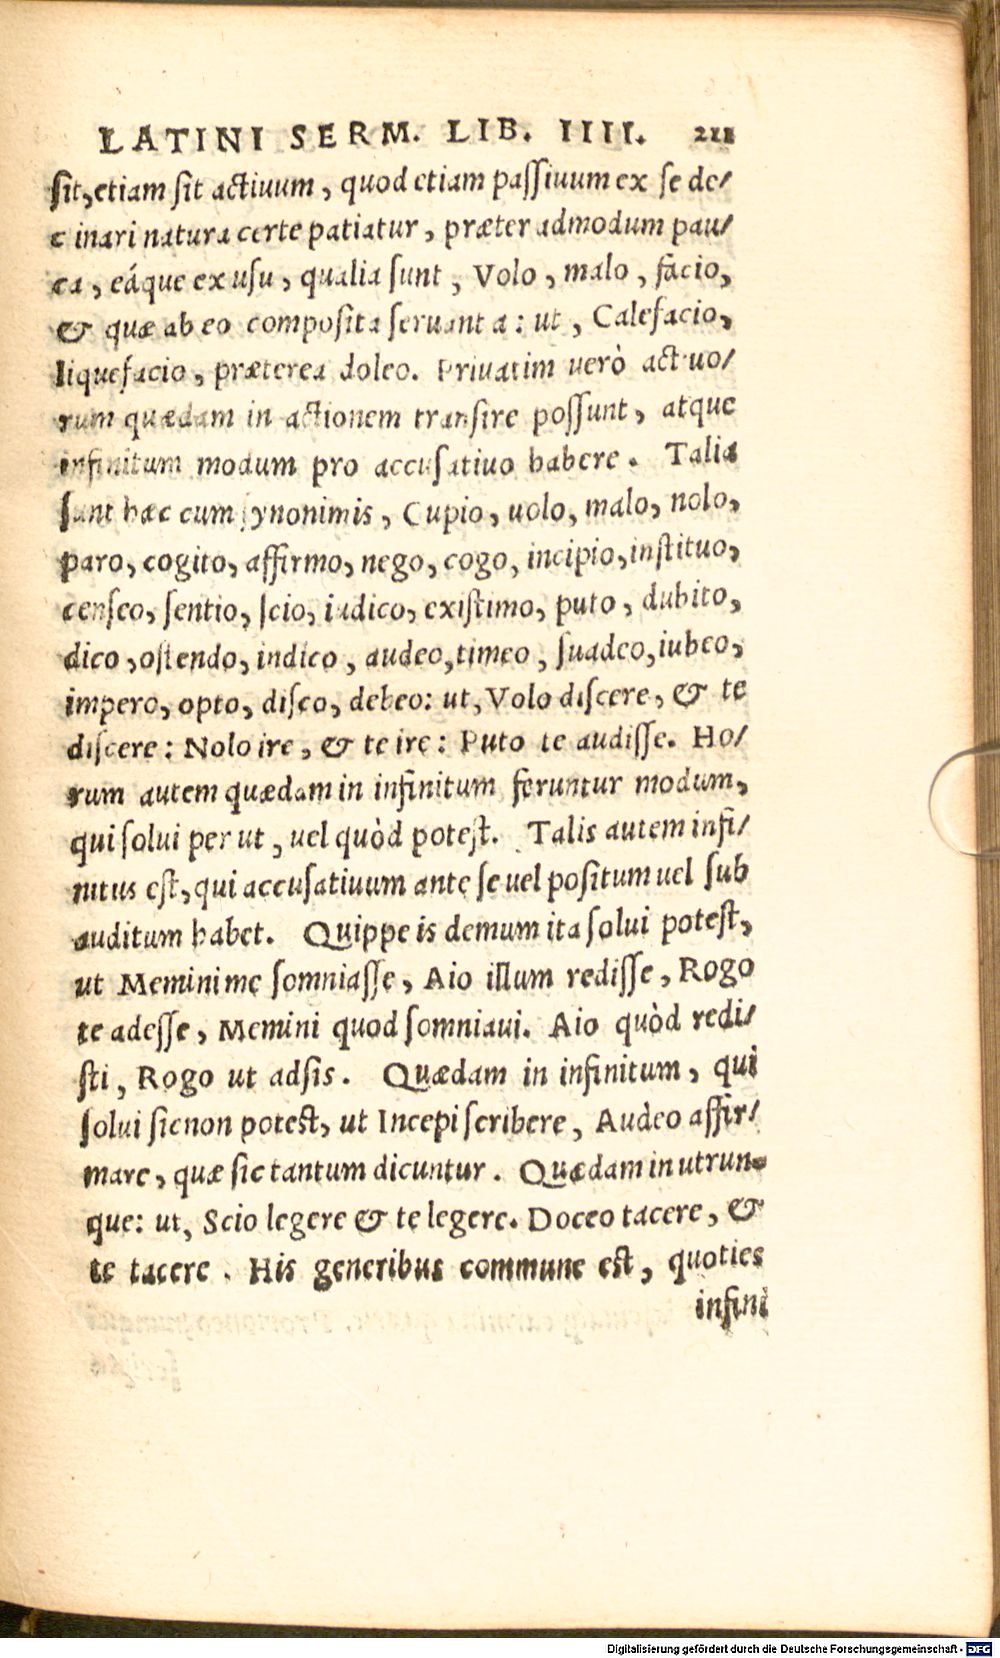 LATINI SERM. LIB. IIII. 211
sit, etiam sit actiuum, quod etiam passiuum ex se de/
c inari natura certe patiatur, præter admodum pau/
ca, eáque ex usu, qualia sunt, Volo, malo, facio,
& quæ ab eo composita seruant a: ut, Calefacio,
liquefacio, præterea doleo. Priuatim uerò actiuo/
rum quædam in actionem transire possunt, atque
infinitum modum pro accusatiuo habere. Talia
sunt hæc cum synonimis, Cupio, uolo, malo, nolo,
paro, cogito, affirmo, nego, cogo, incipio, instituo,
censeo, sentio, scio, iudico, existimo, puto, dubito,
dico, ostendo, indico, audeo, timeo, suadeo, iubeo,
impero, opto, disco, debeo: ut, Volo discere, & te
discere: Nolo ire, & te ire: Puto te audisse. Ho/
rum autem quædam in infinitum feruntur modum,
qui solui per ut, uel quòd potest. Talis autem infi/
nitus est, qui accusatiuum ante se uel positum uel sub
auditum habet. Quippe is demum ita solui potest,
ut Memini me somniasse, Aio illum redisse, Rogo
te adesse, Memini quod somniaui. Aio quòd redi/
sti, Rogo ut adsis. Quædam in infinitum, qui
solui sic non potest, ut Incepi scribere, Audeo affir/
mare, quæ sic tantum dicuntur. Quædam in utrun-
que: ut, Scio legere & te legere. Doceo tacere, &
te tacere. His generibus commune est, quoties
infini
Digitalisierung gefördert durch die Deutsche Forschungsgemeinschaft - DFG